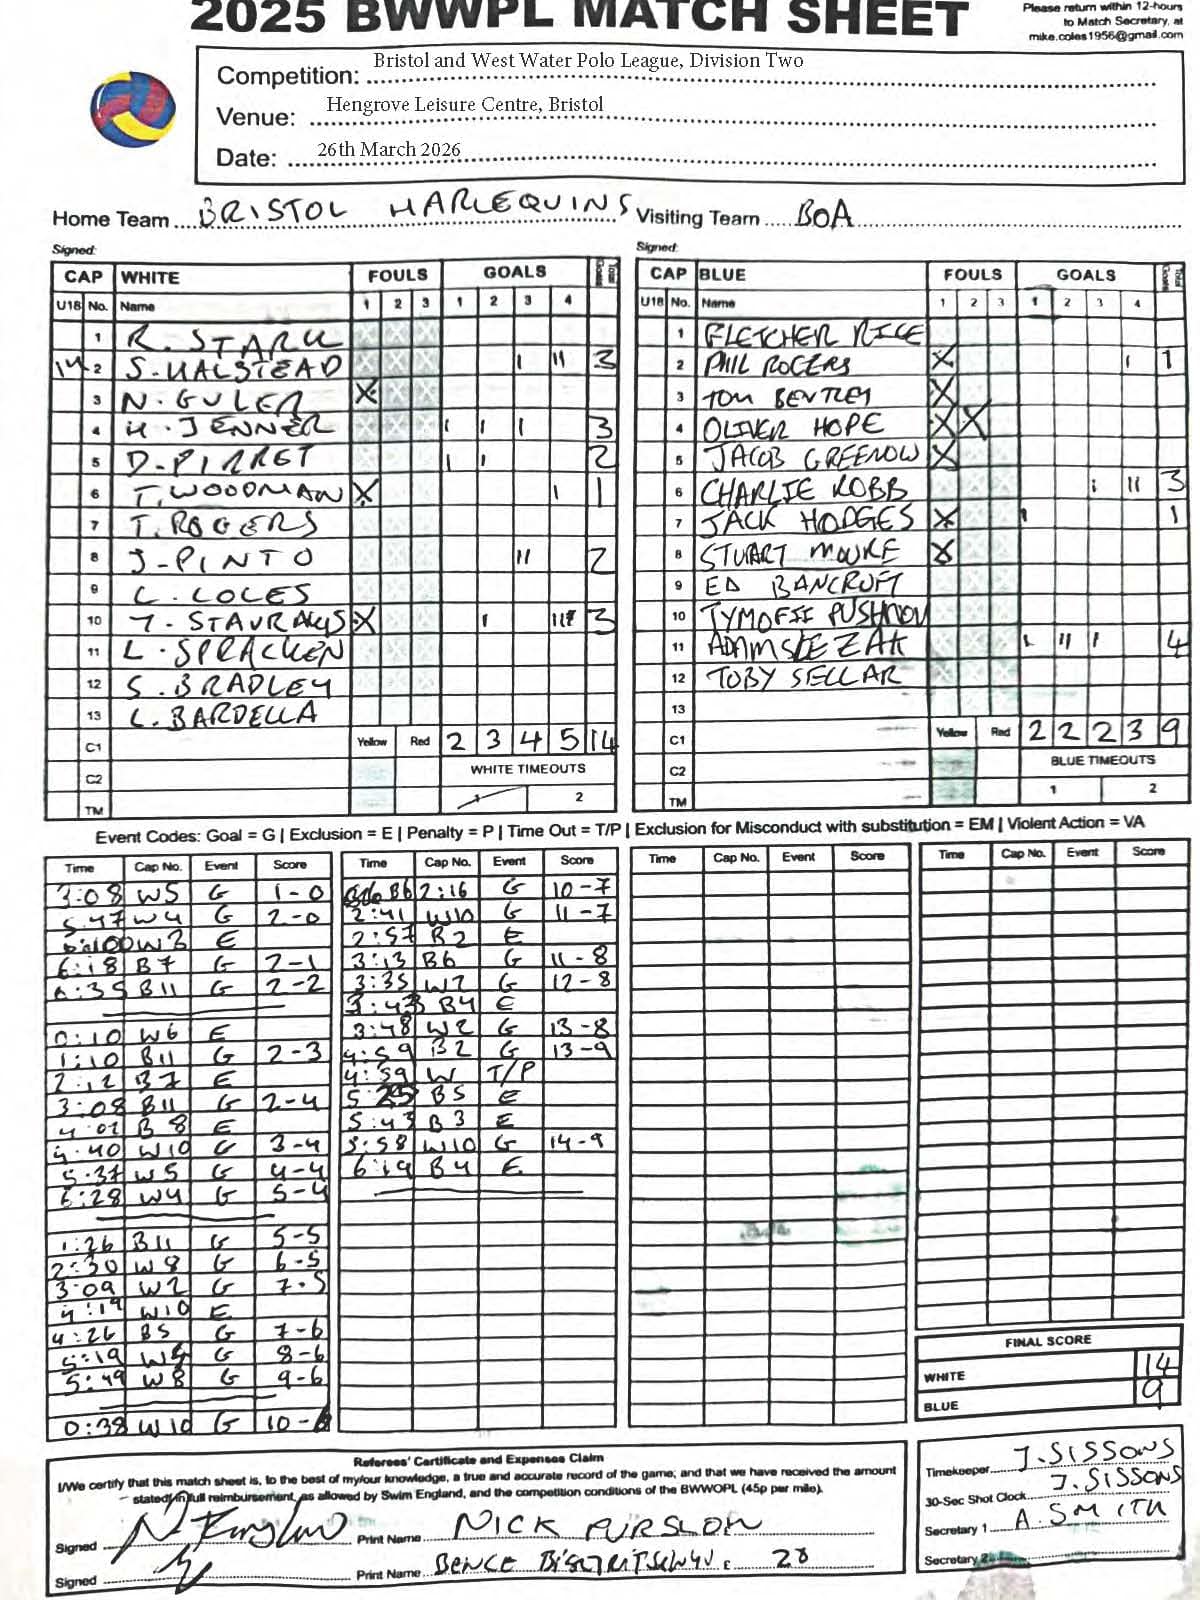 2025 BWWPL MATCH SHEET
Please return within 12-hours
to Match Secretary, at
mike.coles1956@gmail.com
Competition: Bristol and West Water Polo League, Division Two
Venue: Hengrove Leisure Centre, Bristol
Date: 26th March 2026
Home Team BRISTOL HARLEQUINS Visiting Team BOA
Signed: Signed:
CAP WHITE FOULS GOALS Total Goals
U18 No. Name 1 2 3 1 2 3 4
1 R. STARK
14 2 S. HALSTEAD I II 3
3 N. GULER X
4 H. JENNER I I I 3
5 D. PIRRET I I 2
6 T. WOODMAN X I 1
7 T. ROGERS
8 J. PINTO II 2
9 C. COLES
10 T. STAVRAKIS X I III 3
11 L. SPRACKEN
12 S. BRADLEY
13 C. BARDELLA
C1 Yellow Red 2 3 4 5 14
C2 WHITE TIMEOUTS
TM 1 2
CAP BLUE FOULS GOALS Total Goals
U18 No. Name 1 2 3 1 2 3 4
1 FLETCHER RICE
2 PHIL ROGERS X I 1
3 TOM BENTLEY X
4 OLIVER HOPE X X
5 JACOB GREENOW X
6 CHARLIE ROBB I II 3
7 JACK HODGES X I 1
8 STUART X
9 ED BANCROFT
10 TYMOFII PUSHNOV
11 ADAM SLEZAK I II I 4
12 TOBY SELLAR
13
C1 Yellow Red 2 2 2 3 9
C2 BLUE TIMEOUTS
TM 1 2
Event Codes: Goal = G | Exclusion = E | Penalty = P | Time Out = T/P | Exclusion for Misconduct with substitution = EM | Violent Action = VA
Time Cap No. Event Score
3:08 W5 G 1-0
5:47 W4 G 2-0
W3 E
6:18 B7 G 2-1
6:35 B11 G 2-2
0:10 W6 E
1:10 B11 G 2-3
2:12 B7 E
3:08 B11 G 2-4
4:01 B8 E
4:40 W10 G 3-4
5:37 W5 G 4-4
6:28 W4 G 5-4
1:26 B11 G 5-5
2:30 W8 G 6-5
3:09 W2 G 7-5
4:19 W10 E
4:26 B5 G 7-6
5:19 W4 G 8-6
5:49 W8 G 9-6
0:38 W10 G 10-6
Time Cap No. Event Score
B6 2:16 G 10-7
2:41 W10 G 11-7
2:57 B2 E
3:13 B6 G 11-8
3:35 W2 G 12-8
3:43 B4 E
3:48 W2 G 13-8
4:59 B2 G 13-9
4:59 W T/P
5:25 B5 E
5:43 B3 E
5:58 W10 G 14-9
6:19 B4 E
Time Cap No. Event Score
Time Cap No. Event Score
FINAL SCORE
WHITE 14
BLUE 9
Referees' Certificate and Expenses Claim
I/We certify that this match sheet is, to the best of my/our knowledge, a true and accurate record of the game; and that we have received the amount
stated in full reimbursement, as allowed by Swim England, and the competition conditions of the BWWOPL (45p per mile).
Signed Print Name NICK PURSLOW
Signed Print Name BENCE £ 28
Timekeeper J. SISSONS
30-Sec Shot Clock J. SISSONS
Secretary 1 A. SMITH
Secretary 2